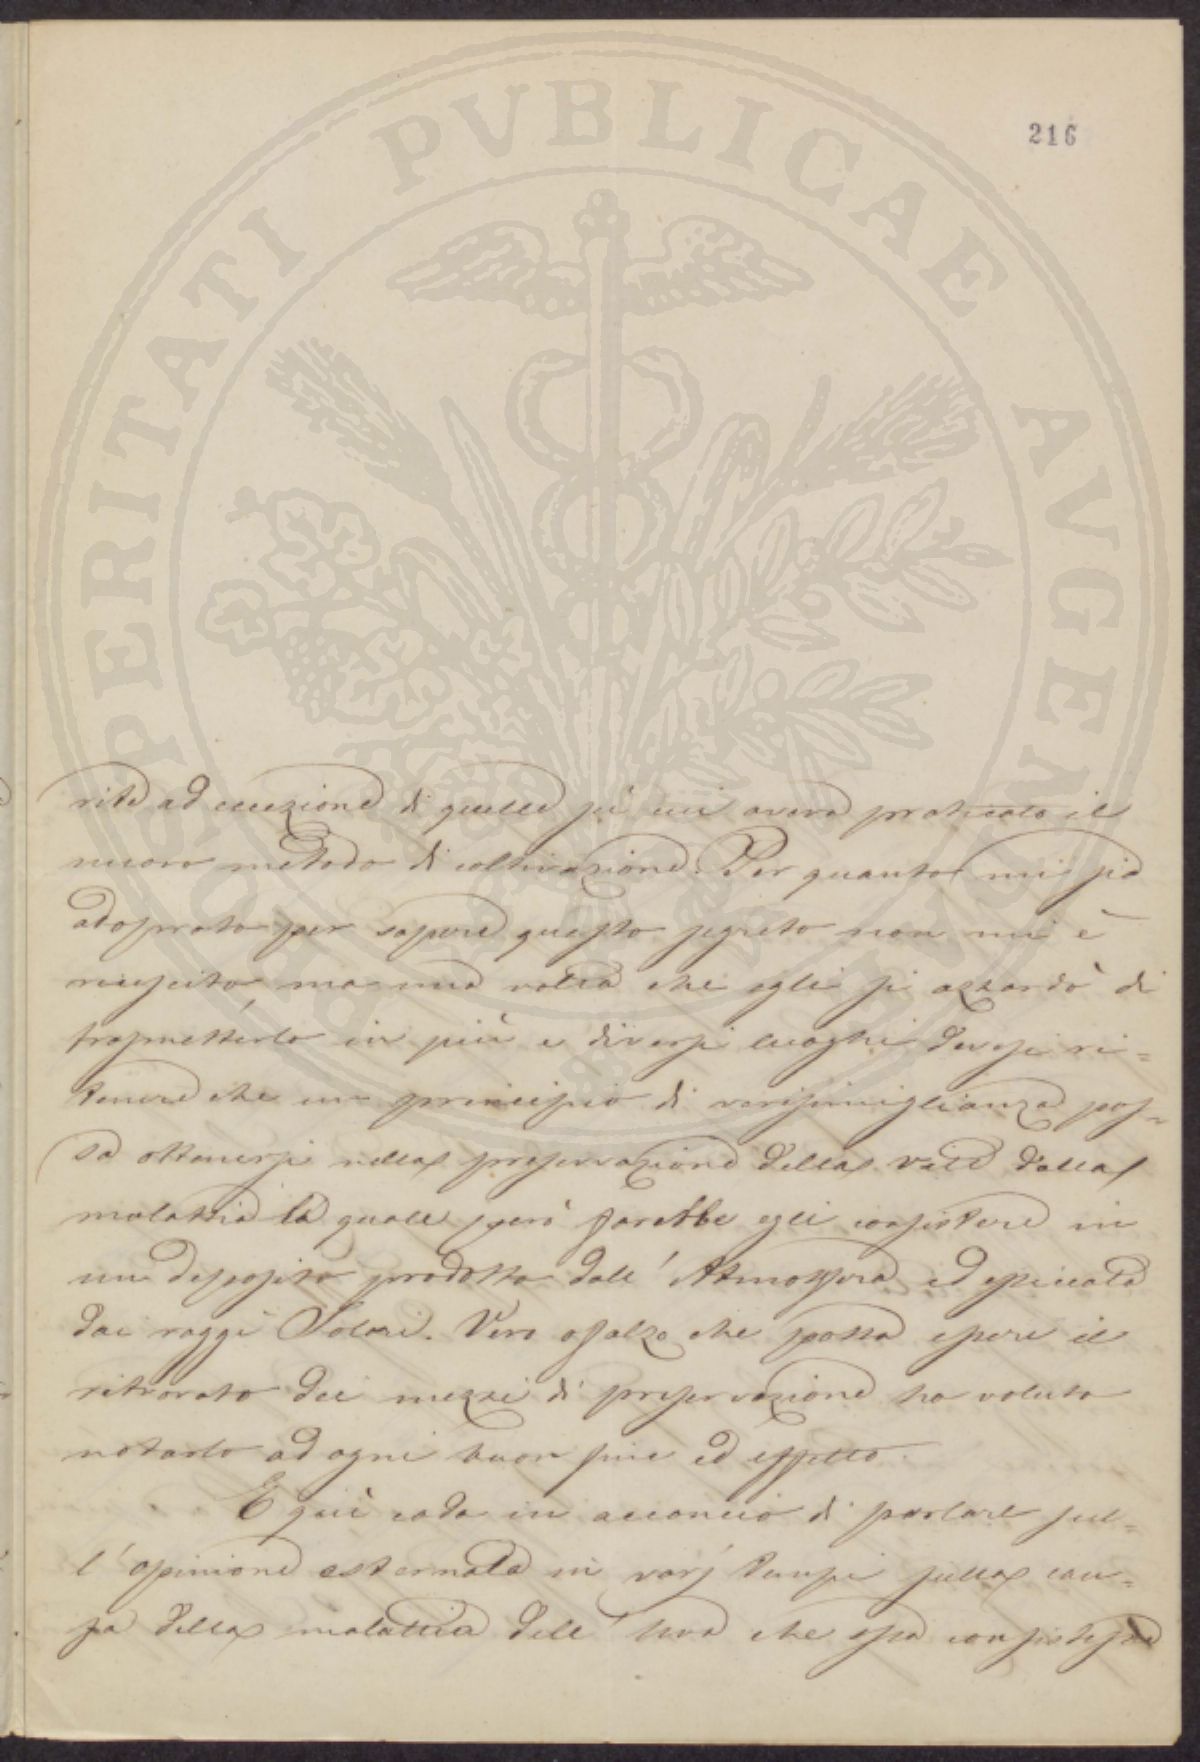 216
PROSPERITATI PVBLICAE AVGENDAE
rite ad eccezione di quelle su cui aveva praticato il
nuovo metodo di coltivazione. Per quanto mi sia
adoprato per sapere questo segreto non mi è
riuscito, ma una volta che egli si azzardò di
trasmetterlo in più e diversi luoghi devesi ri=
tenere che un principio di verisimiglianza pos=
sa ottenersi nella preservazione della vite dalla
malattia la quale però farebbe egli consistere in
un deposito prodotto dall' Atmosfera ed essiccata
dai raggi Solari. Vero o falso che possa essere il
ritrovato dei mezzi di preservazione ho voluto
notarlo ad ogni buon fine ed effetto.
E qui cade in acconcio di parlare sul=
l'opinione esternata in varj tempi sulla cau=
sa della malattia dell' Uva che essa consistesse